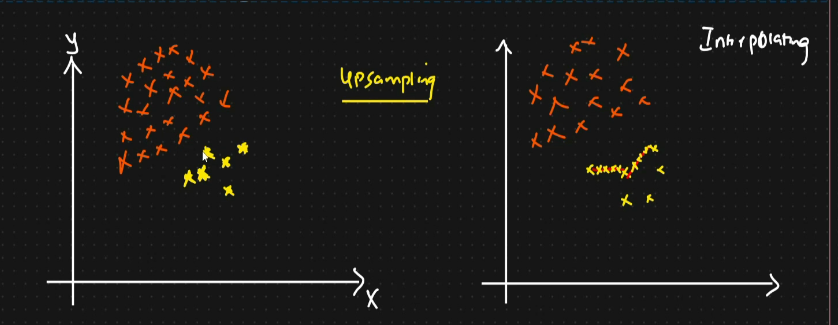 y
Upsampling
Interpolating
x